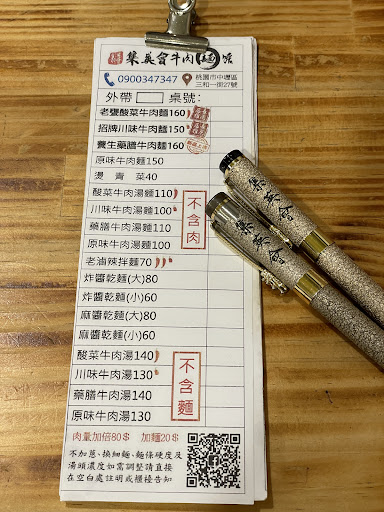 集英會牛肉麵館
0900347347
桃園市中壢區
三和一街27號
外帶 桌號:
老甕酸菜牛肉麵160
招牌川味牛肉麵150
養生藥膳牛肉麵160
原味牛肉麵150
燙青菜40
酸菜牛肉湯麵110
川味牛肉湯麵100
藥膳牛肉湯麵110
原味牛肉湯麵100
不含肉
老滷辣拌麵70
炸醬乾麵(大)80
炸醬乾麵(小)60
麻醬乾麵(大)80
麻醬乾麵(小)60
酸菜牛肉湯140
川味牛肉湯130
藥膳牛肉湯140
原味牛肉湯130
不含麵
肉量加倍80$ 加麵20$
不加蔥、換細麵、麵條硬度及
湯頭濃度如需調整請直接
在空白處註明或櫃檯告知
集英會
集英會